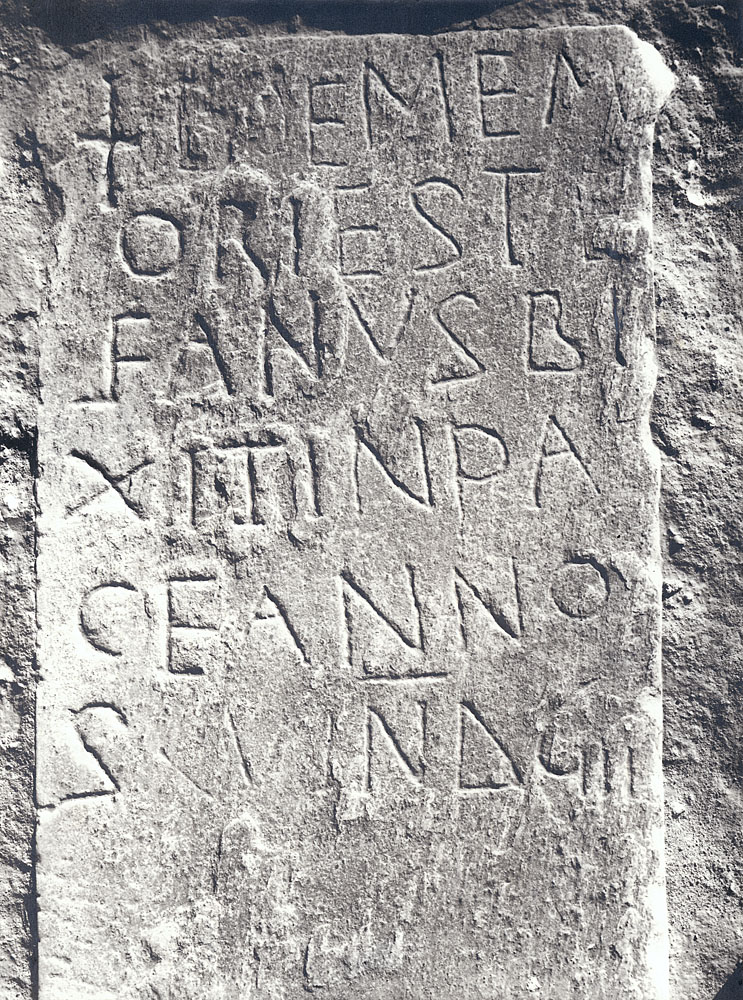 + BAEMEM
ORIESTE
FANVSBI
XITINPA
CEANNO
S V INDϚII